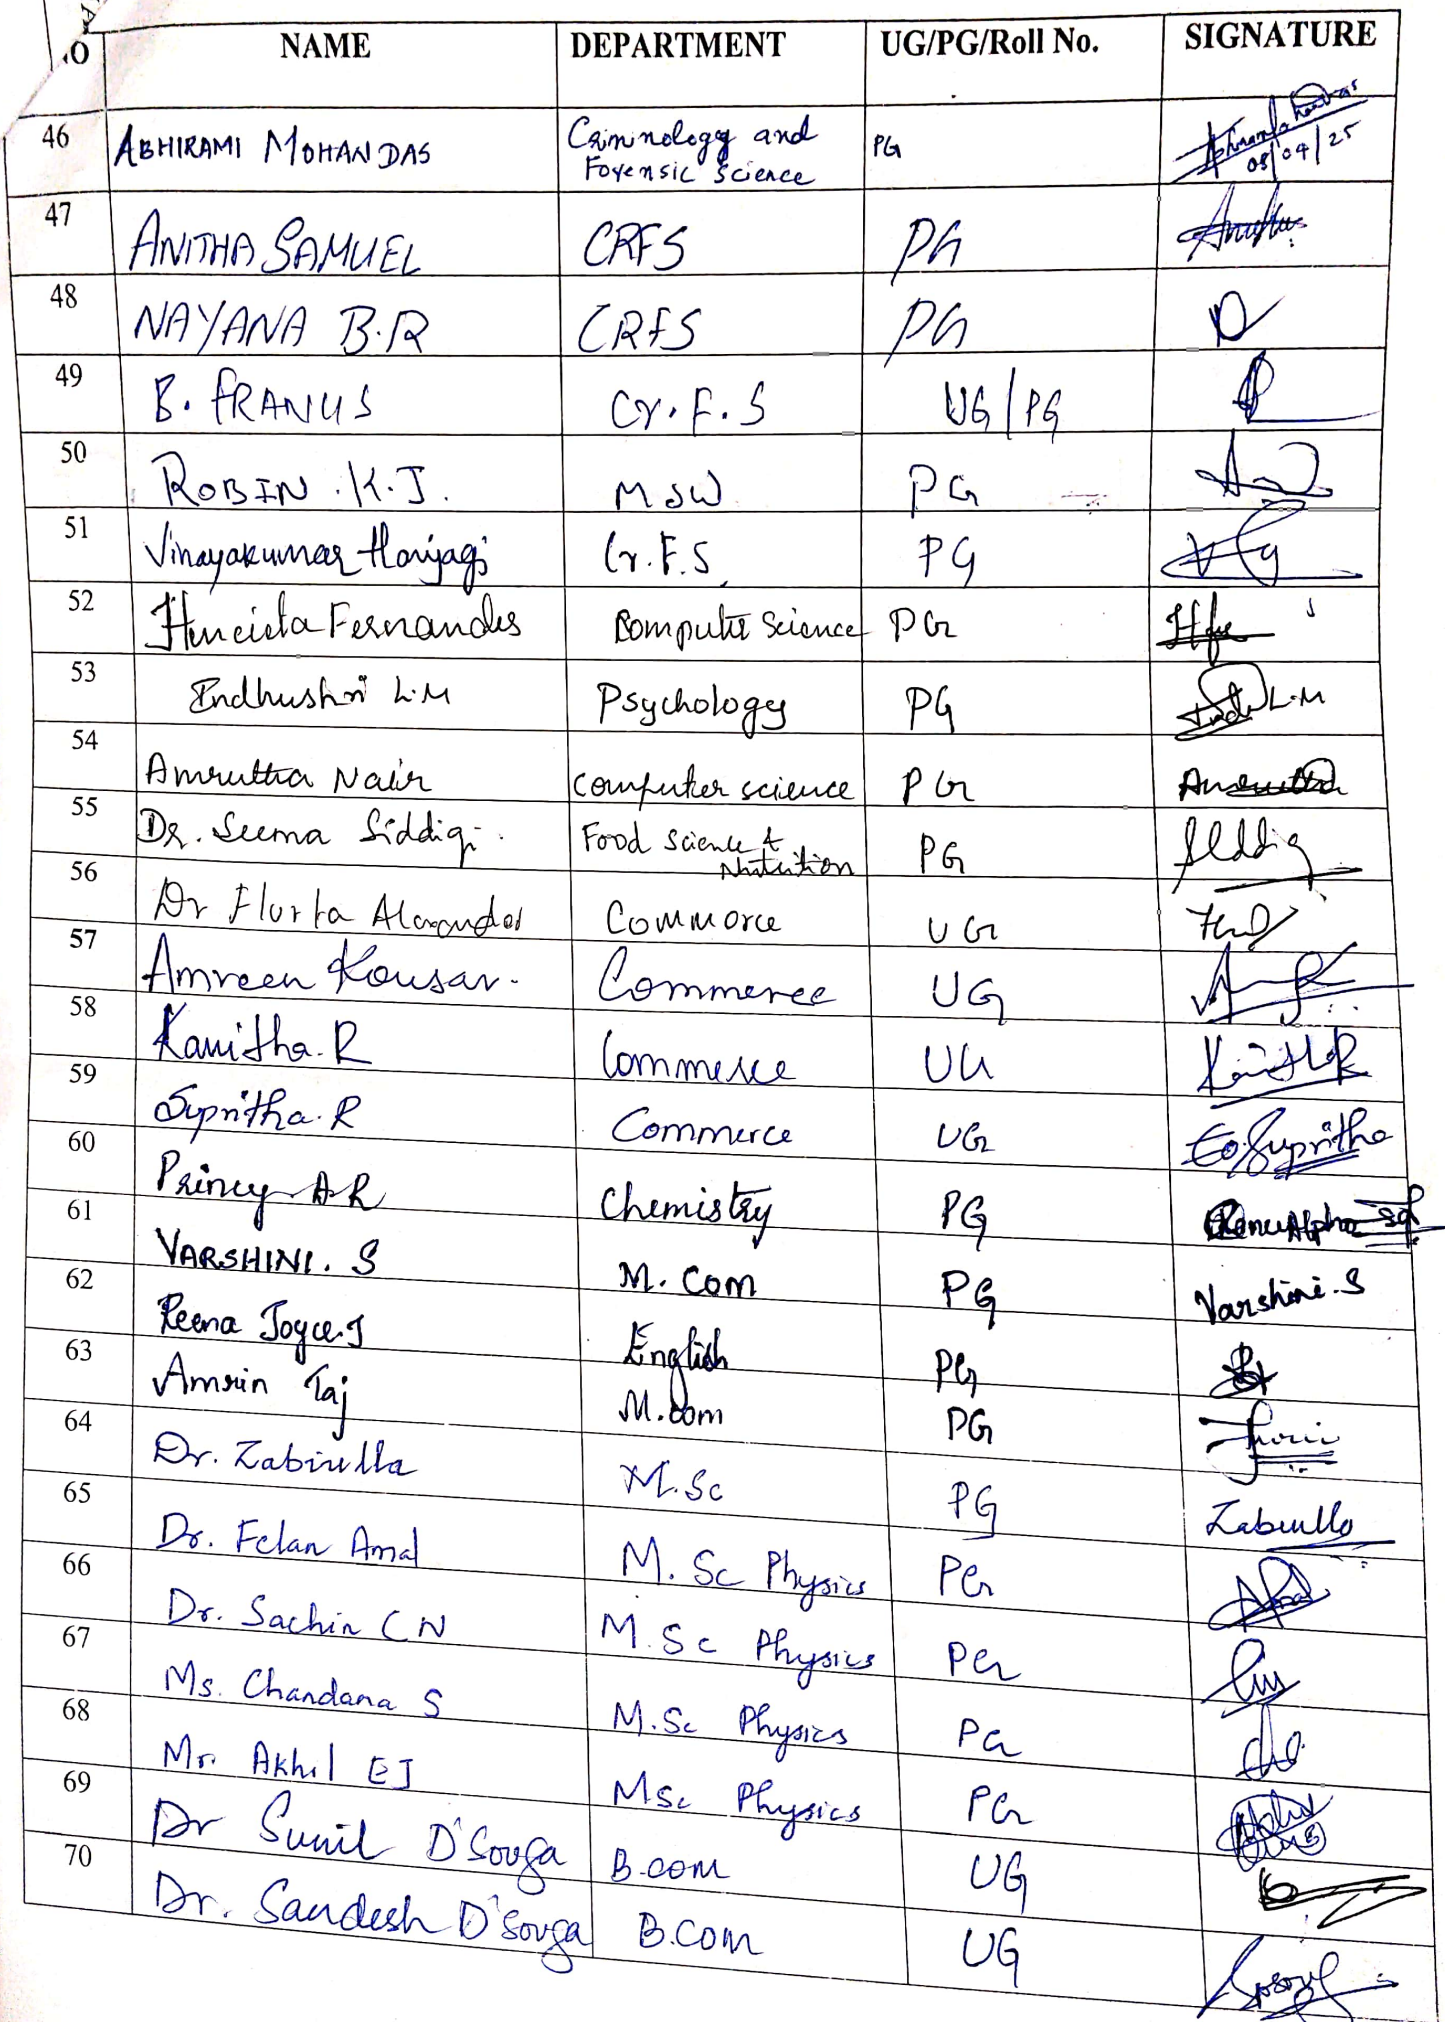 NO NAME DEPARTMENT UG/PG/Roll No. SIGNATURE
46 ABHIRAMI MOHANDAS Criminology and Forensic Science PG 08/04/25
47 ANITHA SAMUEL CRFS PG
48 NAYANA B.R CRFS PG
49 B. FRANCIS Cr.F.S UG/PG
50 ROBIN .K.J. MSW PG
51 Vinayakumar Honjagi Cr.F.S PG
52 Henrieta Fernandes Computer Science PG
53 Indhushri L.M Psychology PG L.M
54 Amrutha Nair computer science PG Amrutha
55 Dr. Seema Siddiqi Food Science & Nutrition PG
56 Dr Commerce UG
57 Amreen Kousar. Commerce UG
58 Kavitha. R Commerce UG
59 Supritha. R Commerce UG Supritha
60 Princy A R Chemistry PG
61 VARSHINI. S M. Com PG Varshini. S
62 Reena Joyce.J English PG
63 Amrin Taj M.Com PG
64 Dr. Zabiulla M.Sc PG Zabiulla
65 Dr. Felan Amal M. Sc Physics PG
66 Dr. Sachin C N M.Sc Physics PG
67 Ms. Chandana S M.Sc Physics PG
68 Mr. Akhil EJ MSc Physics PG
69 Dr Sunil D'Souza B.com UG
70 Dr. Sandesh D'Souza B.Com UG